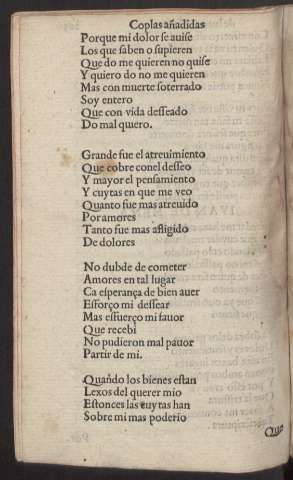 Coplas añadidas
Porque mi dolor se auise
Los que saben o supieren
Que do me quieren no quise
Y quiero do no me quieren
Mas con muerte soterrado
Soy entero
Que con vida desseado
Do mal quiero.
Grande fue el atreuimiento
Que cobre conel desseo
Y mayor el pensamiento
Y cuytas en que me veo
Quanto fue mas atreuido
Por amores
Tanto fue mas afligido
De dolores
No dubde de cometer
Amores en tal lugar
Ca esperança de bien auer
Esforço mi dessear
Mas esfuerço mi fauor
Que recebi
No pudieron mal pauor
Partir de mi.
Quando los bienes estan
Lexos del querer mio
Estonces las cuytas han
Sobre mi mas poderio
Que